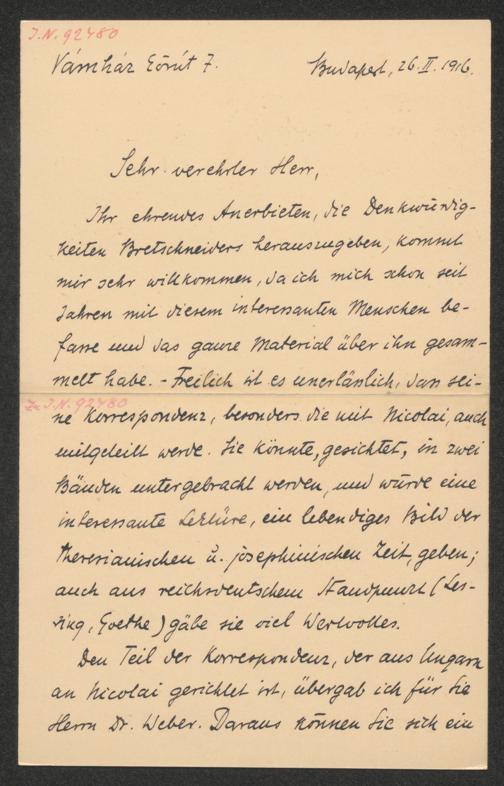 I.N. 92480
Vámház Körút 7.
Budapest, 26.II.1916.
Sehr verehrter Herr,
Ihr ehrendes Anerbieten, die Denkwürdig-
keiten Bretschneiders herauszugeben, kommt
mir sehr willkommen, da ich mich schon seit
Jahren mit diesem interessanten Menschen be-
fasse und das ganze Material über ihn gesam-
melt habe. - Freilich ist es unerlässlich, dass sei-
Zu I.N. 92480
ne Korrespondenz, besonders die mit Nicolai, auch
mitgeteilt werde. Sie könnte, gesichtet, in zwei
Bänden untergebracht werden, und würde eine
interessante Lektüre, ein lebendiges Bild der
theresianischen u. josephinischen Zeit, geben;
auch aus reichsdeutschem Standpunkt (Les-
sing, Goethe) gäbe sie viel Wertvolles.
Den Teil der Korrespondenz, der aus Ungarn
an Nicolai gerichtet ist, übergab ich für Sie
Herrn Dr. Weber. Daraus können Sie sich ein